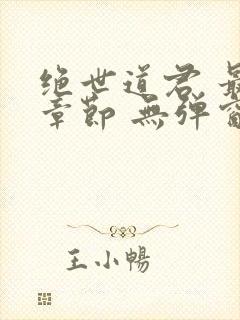 绝世道君 最
章節 無弹窗
王小暢